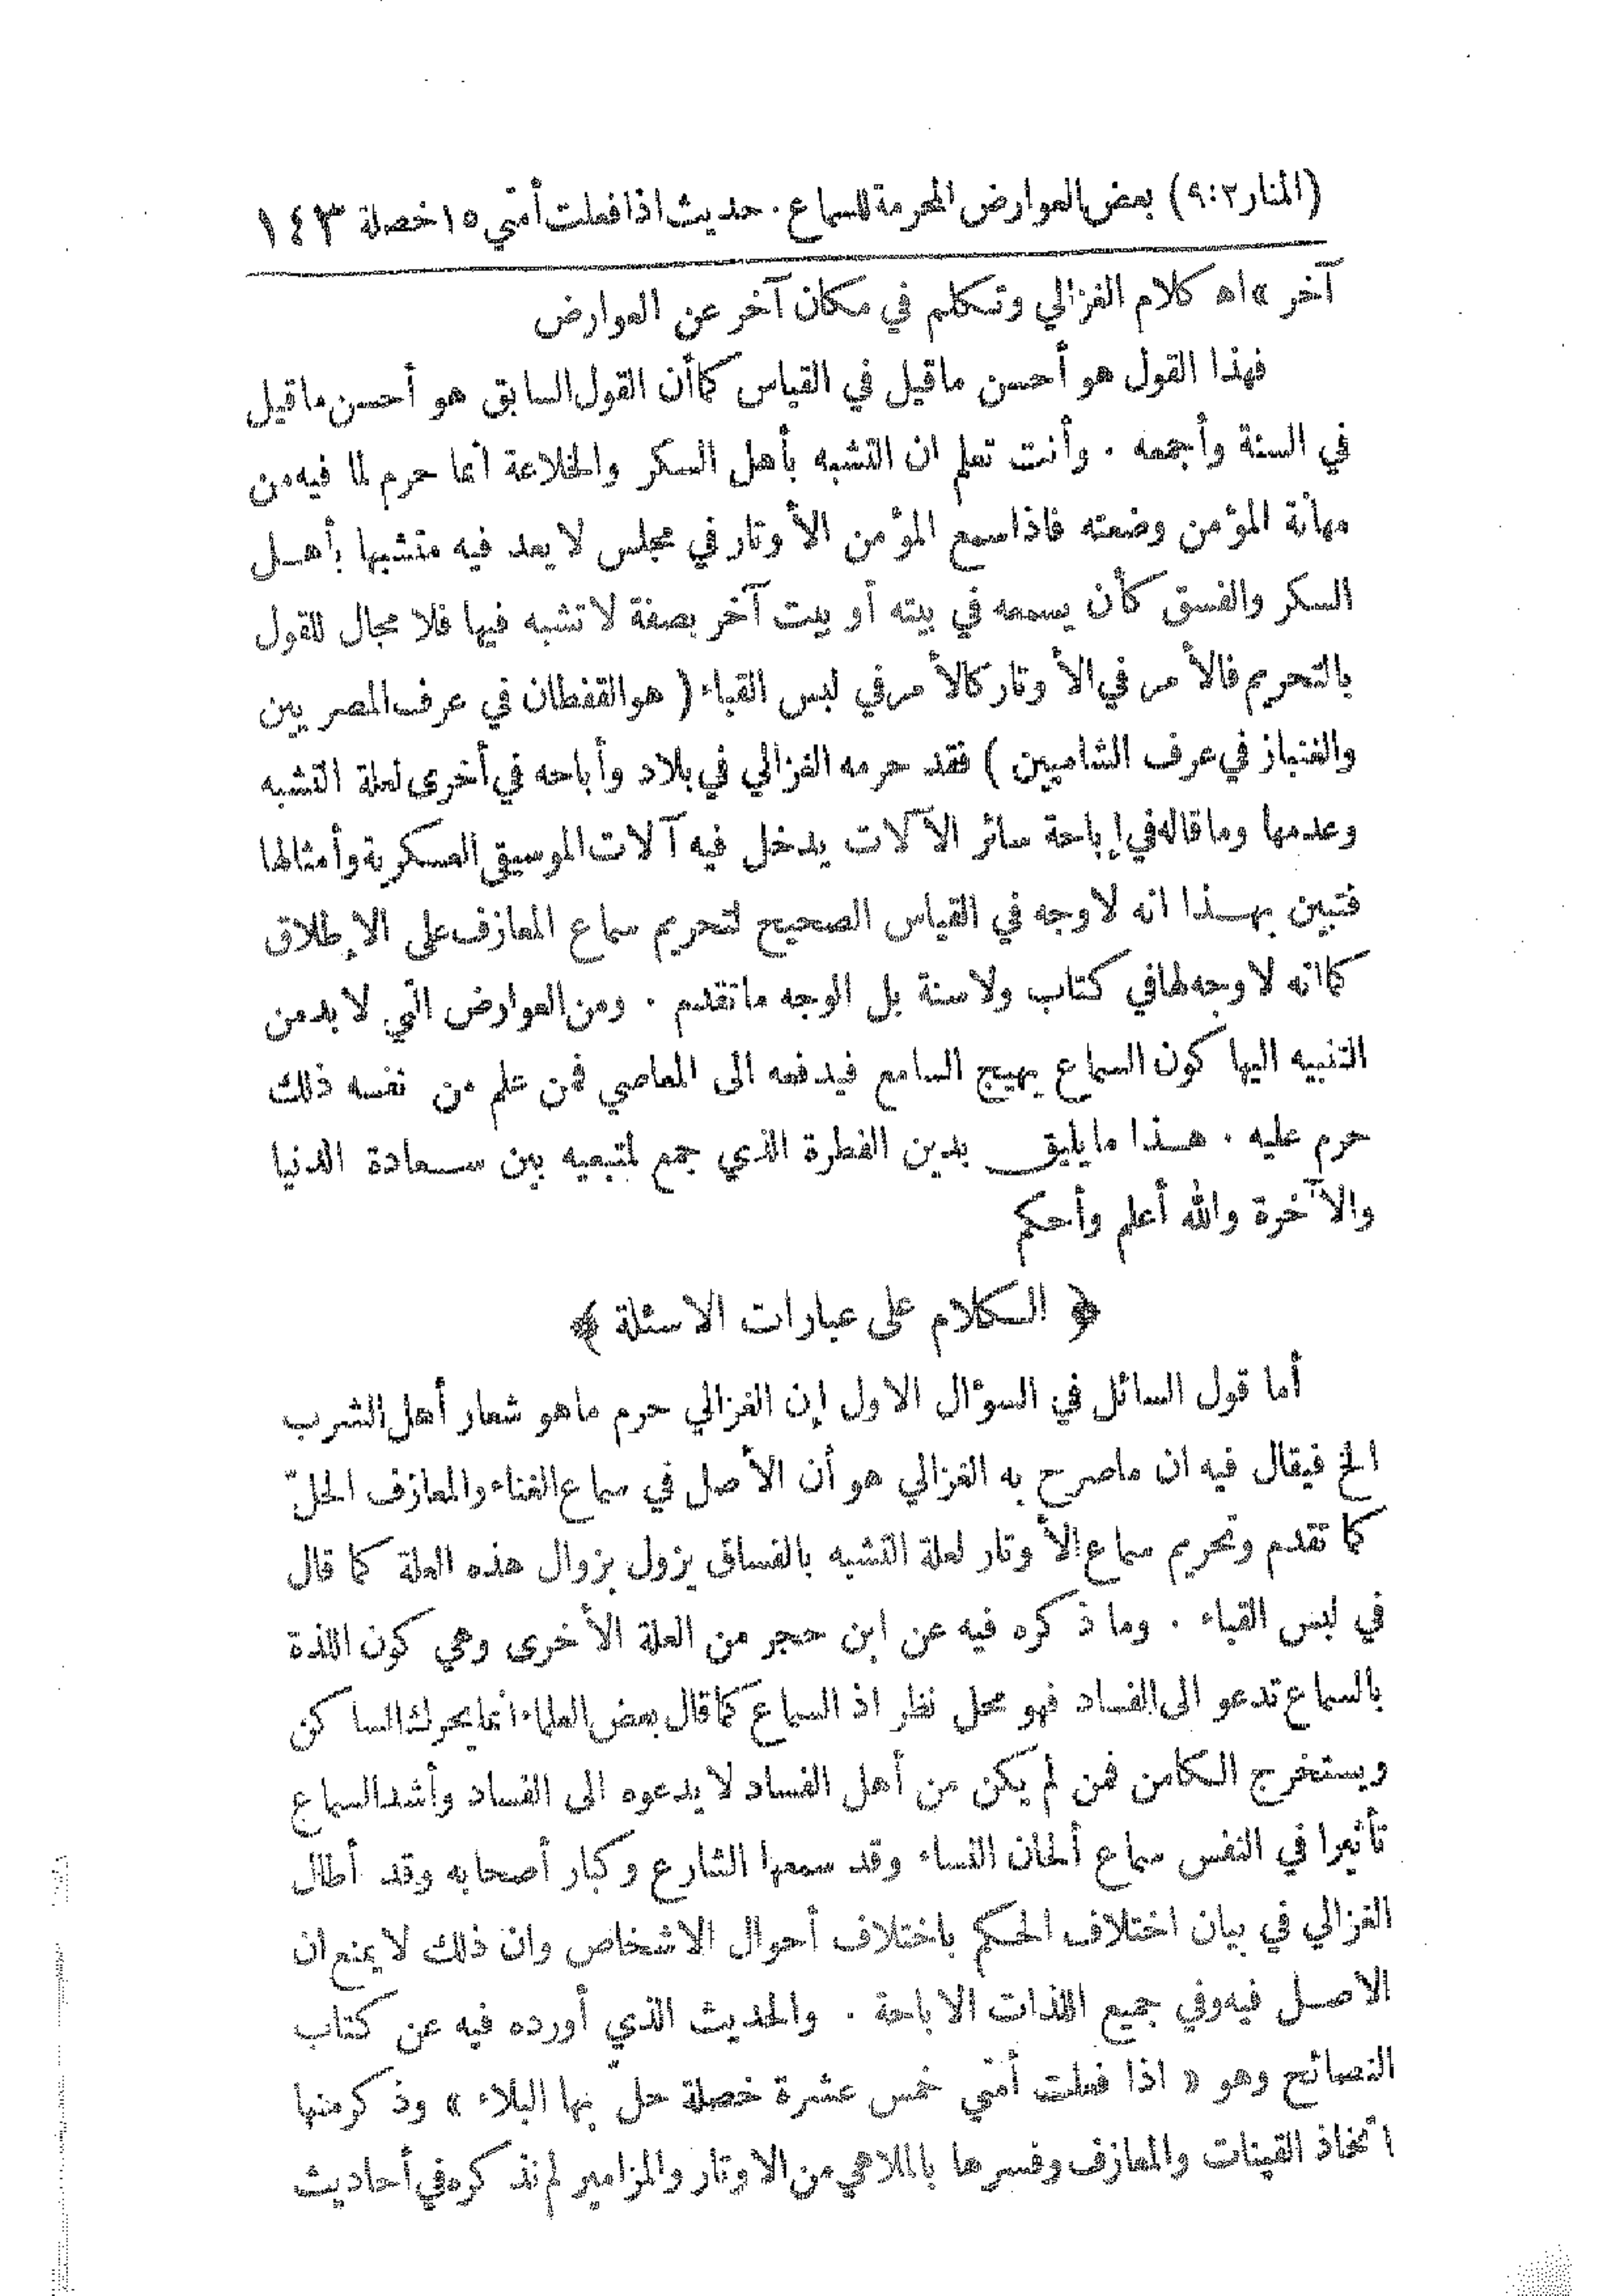 (المنار ٢ : ٩) بعض العوارض المحرمة للسماع . حديث اذا فعلت أمتي ١٥ خصلة ١٤٣
آخر » اه كلام الغزالي وتكلم في مكان آخر عن العوارض
فهذا القول هو أحسن ماقيل في القياس كما أن القول السابق هو أحسن ماقيل
في السنة وأجمعه . وأنت تعلم ان التشبه بأهل السكر والخلاعة انما حرم لما فيه من
مهانة المؤمن وضعته فاذا سمع المؤمن الأوتار في مجلس لا يعد فيه متشبها بأهل
السكر والفسق كأن يسمعه في بيته أو بيت آخر بصفة لا تشبه فيها فلا مجال للقول
بالتحريم فالأمر في الأوتار كالأمر في لبس القباء ( هو القفطان في عرف المصريين
والغنباز في عرف الشاميين ) فقد حرمه الغزالي في بلاد وأباحه في أخرى لعلة التشبه
وعدمها وما قاله في إباحة سائر الآلات يدخل فيه آلات الموسيقى العسكرية وأمثالها
فتبين بهذا انه لا وجه في القياس الصحيح لتحريم سماع المعازف على الإطلاق
كما انه لا وجه لها في كتاب ولا سنة بل الوجه ما تقدم . ومن العوارض التي لا بد من
التنبيه اليها كون السماع يهيج السامع فيدفعه الى المعاصي فمن علم من نفسه ذلك
حرم عليه . هذا ما يليق بدين الفطرة الذي جمع لمتبعيه بين سعادة الدنيا
والآخرة والله أعلم وأحكم
﴿ الكلام على عبارات الاسئلة ﴾
أما قول السائل في السؤال الاول إن الغزالي حرم ماهو شعار أهل الشرب
الخ فيقال فيه ان ماصرح به الغزالي هو أن الأصل في سماع الغناء والمعازف الحلّ
كما تقدم وتحريم سماع الأوتار لعلة التشبه بالفساق يزول بزوال هذه العلة كما قال
في لبس القباء . وما ذكره فيه عن ابن حجر من العلة الأخرى وهي كون اللذة
بالسماع تدعو الى الفساد فهو محل نظر اذ السماع كما قال بعض العلماء انما يحرك الساكن
ويستخرج الكامن فمن لم يكن من أهل الفساد لا يدعوه الى الفساد وأشد السماع
تأثيرا في النفس سماع ألحان النساء وقد سمعها الشارع وكبار أصحابه وقد أطال
الغزالي في بيان اختلاف الحكم باختلاف أحوال الاشخاص وان ذلك لا يمنع ان
الاصل فيه وفي جميع اللذات الاباحة . والحديث الذي أورده فيه عن كتاب
النصائح وهو « اذا فعلت أمتي خمس عشرة خصلة حلّ بها البلاء » وذكر منها
اتخاذ القينات والمعازف وفسرها بالملاهي من الاوتار والمزامير لم نذكره في أحاديث